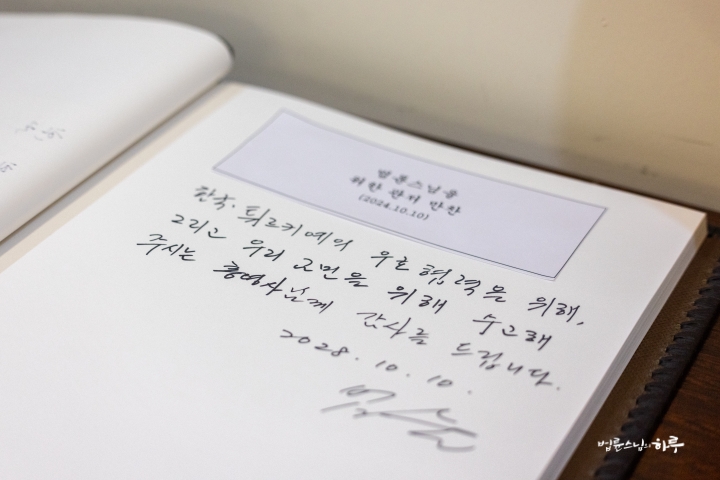 법륜스님을
위한 관저 만찬
(2024.10.10)
한국·튀르키예의 우호협력을 위해,
그리고 우리 교민을 위해 수고해
주시는 총영사님께 감사를 드립니다.
2028. 10. 10.
법륜스님의 하루